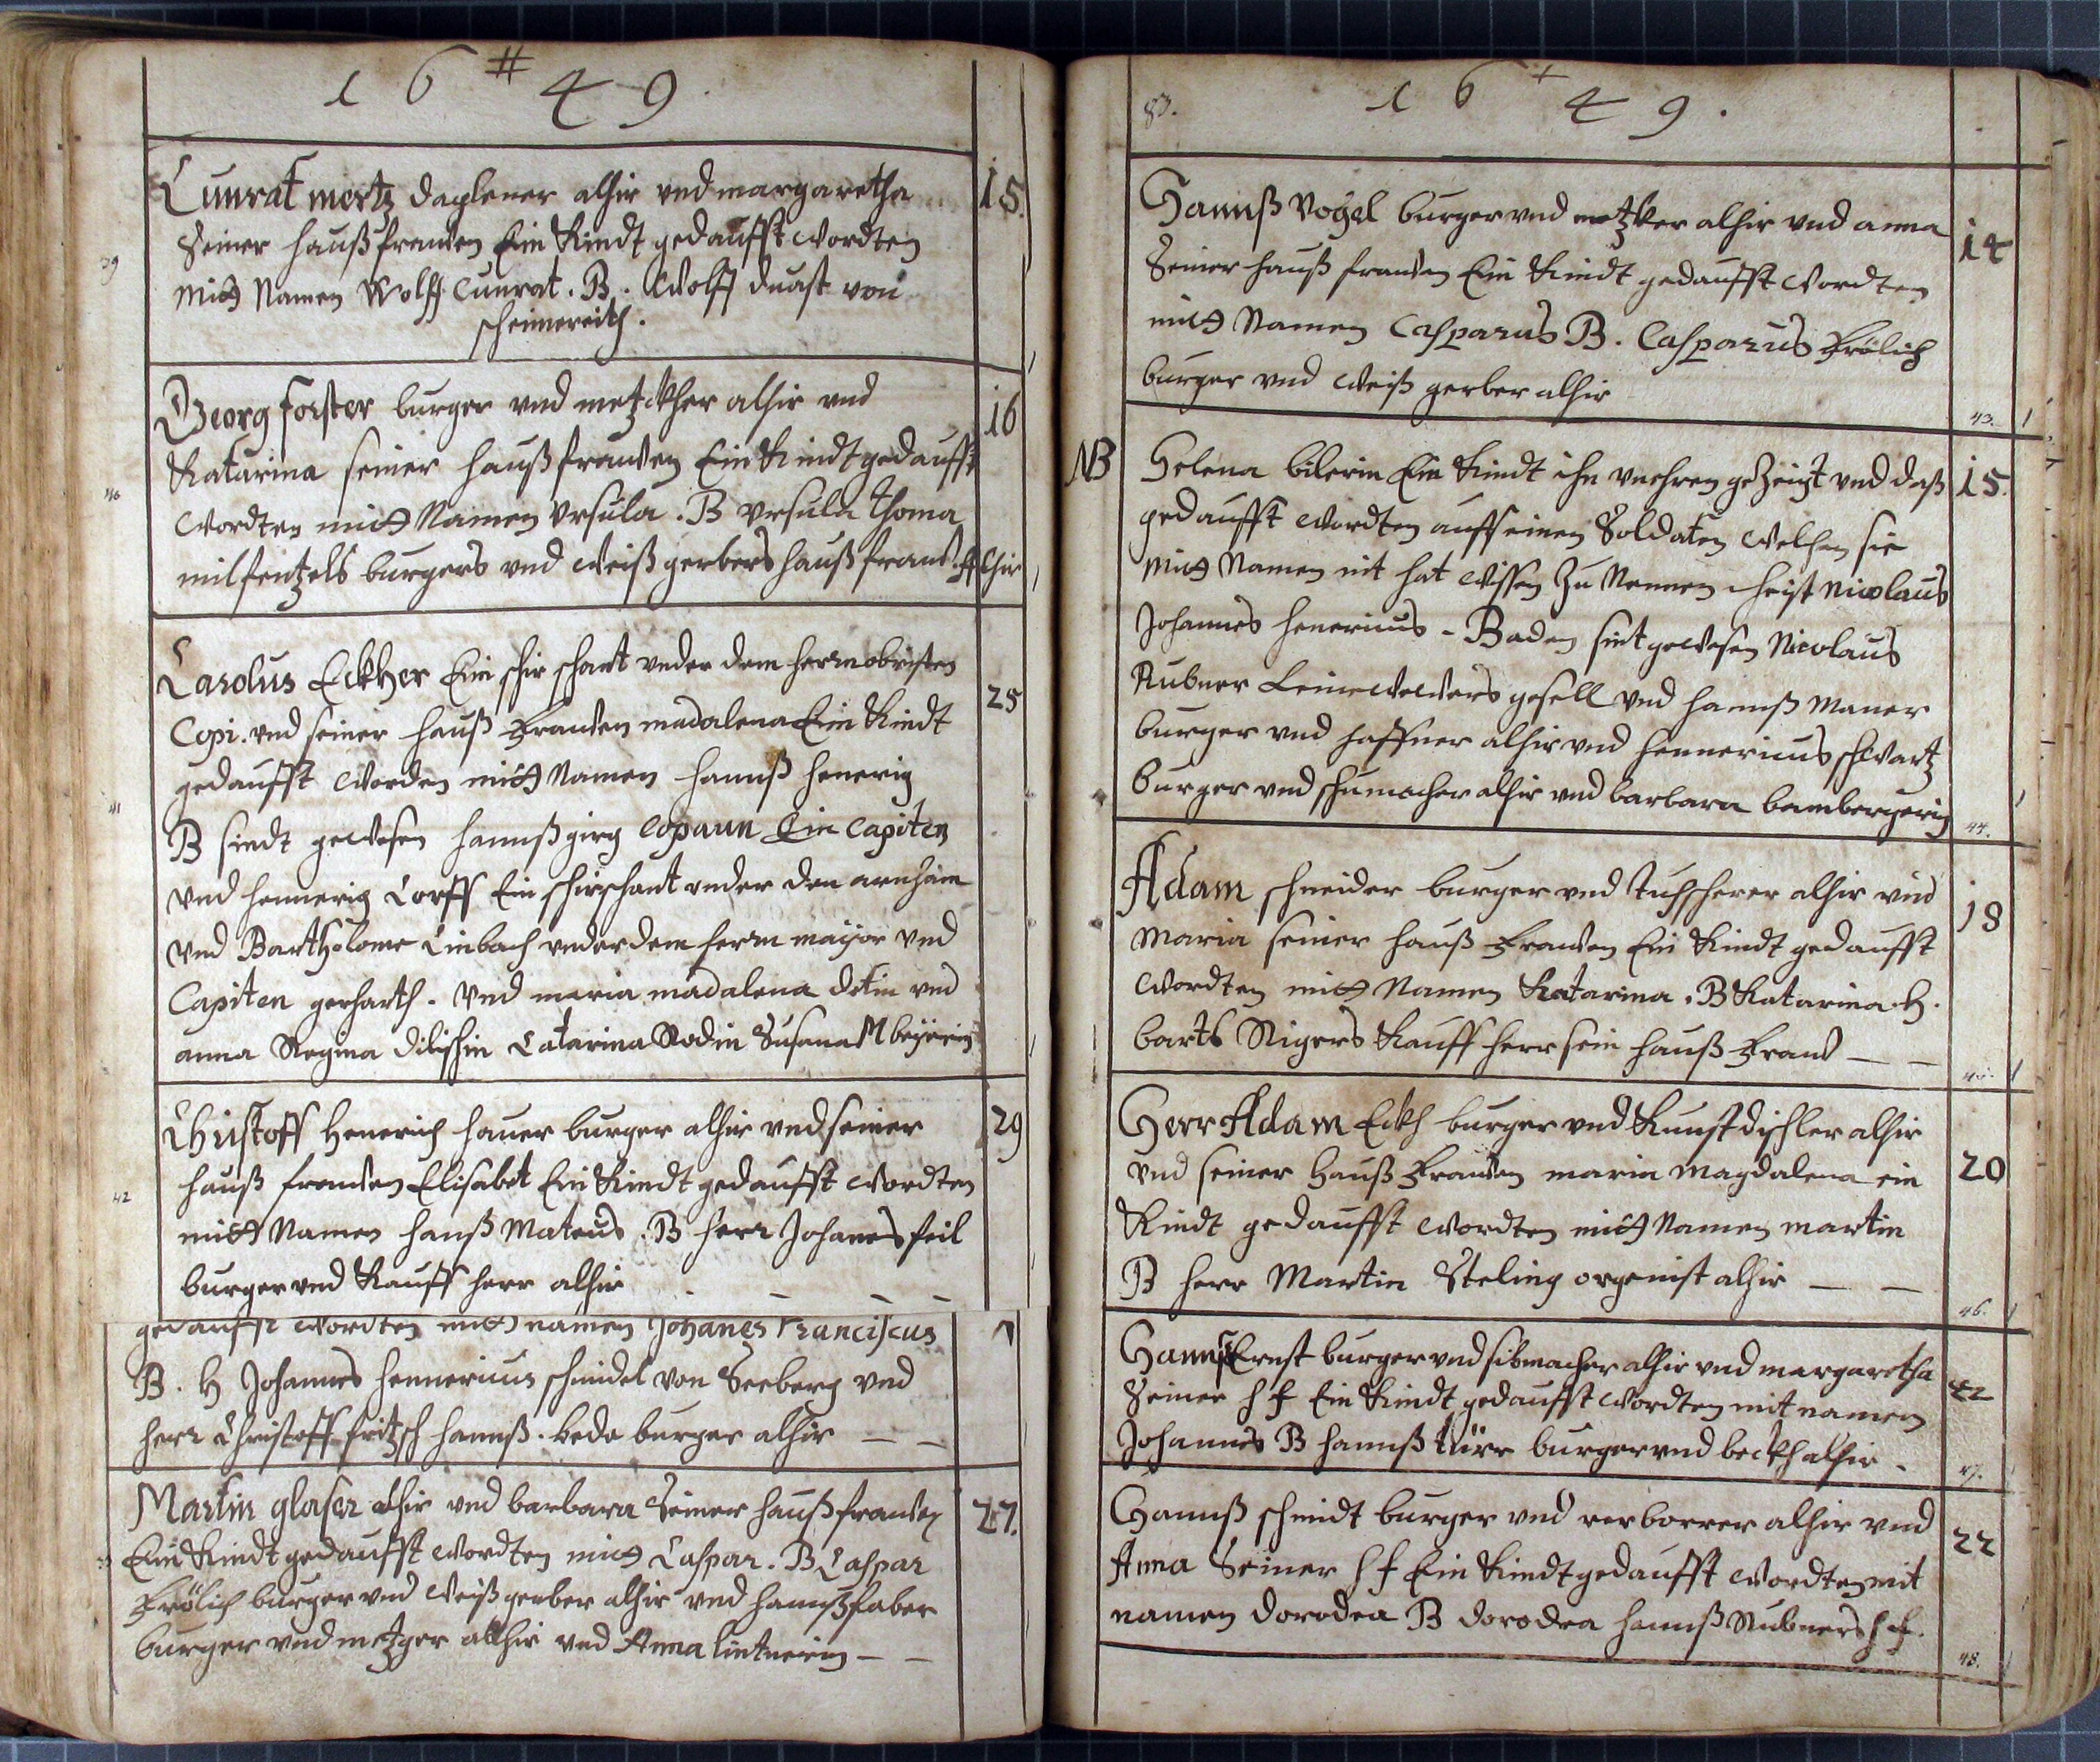 1 6 # 4 9.
Cunrat mertz daglener alhir vnd margaretha 15.
Seiner haußfrawen Ein Kindt gedaufft wordten
39
mitt Namen Wolff Cunrat. B. Wolff von
scheimereith.
Georg forster burger vnd metzkher alhir vnd 16
Katarina seiner haußfrawen Ein Kindt gedaufft
40
wordten mitt Namen Vrsula. B Vrsula Thoma
milfentzels burgers vnd weißgerbers haußfraw alhir
Carolus Eckher Ein schirschant vnder dem herrn obristen
Copi. vnd seiner hauß Frawen madalena Ein Kindt 25
gedaufft worden mitt Namen hannß henerig
41
B sindt gewesen hannßgirg Copaun Ein Capiten
vnd hennerig Corff Ein schirschant vnder den arnhäim
vnd Bartholome Linbach vnder dem herrn maijor vnd
Capiten gerharth. vnd maria madalena detin vnd
anna Regina dibischin Catarina Rodin Susana M beyerin
Christoff Henerich hauer burger alhir vnd seiner 29
hauß frawen Elisabet Ein Kindt gedaufft wordten
42
mitt Namen hanß Mateus. B herr Johanes feil
burger vnd Kauff herr alhir
gedaufft wordten mitt namen Johanes Franciscus
B. H Johannes hennericus schindel von Seeberg vnd
herr Christoff fritzsch hannß. bede burger alhir
Martin glaser alhir vnd barbara Seiner haußfrawen 27.
Ein Kindt gedaufft wordten mitt Caspar. B Caspar
Frölich burger vnd weißgerber alhir vnd hannß faber
burger vnd metzger alhir vnd Anna lintnerin
83. 1 6 + 4 9.
Hannß Vogel burger vnd metzker alhir vnd anna 14
Seiner hauß frawen Ein Kindt gedaufft wordten
mitt Namen Casparus B. Casparus Frölich
burger vnd weiß gerber alhir
43.
NB Helena bilerin Ein Kindt ihn vnehren gezeigt vnd daß 15.
gedaufft wordten auff einen Soldaten welchen sie
mitt Namen nit hat wissen zu Nennen heist Nicolaus
Johannes henericus - Baden sint gewesen Nicolaus
Rubner Leinewewers gesell vnd hannß Maner
burger vnd haffner alhir vnd hennericus schwartz
burger vnd schumacher alhir vnd barbara bambergerin
44.
Adam schneider burger vnd tuchscherer alhir vnd 18
Maria seiner hauß Frawen Ein Kindt gedaufft
wordten mitt Namen Katarina. B Katarina H.
barts Nigers Kauff herr sein hauß Fraw
45.
Herr Adam Eckh burger vnd Kunstdischler alhir
vnd seiner Hauß Frawen maria magdalena ein 20
Kindt gedaufft wordten mitt Namen martin
B herr Martin Steling orgenist alhir
46.
Hannß Ernst burger vnd sibmacher alhir vnd margaretha
Seiner h f Ein Kindt gedaufft wordten mit namen 22
Johannes B hannß türr burger vnd beckh alhir.
47.
Hannß schmidt burger vnd rerborrer alhir vnd 22
Anna Seiner h f Ein Kindt gedaufft wordten mit
namen dorodea B dorodea hannß Rubners h f.
48.